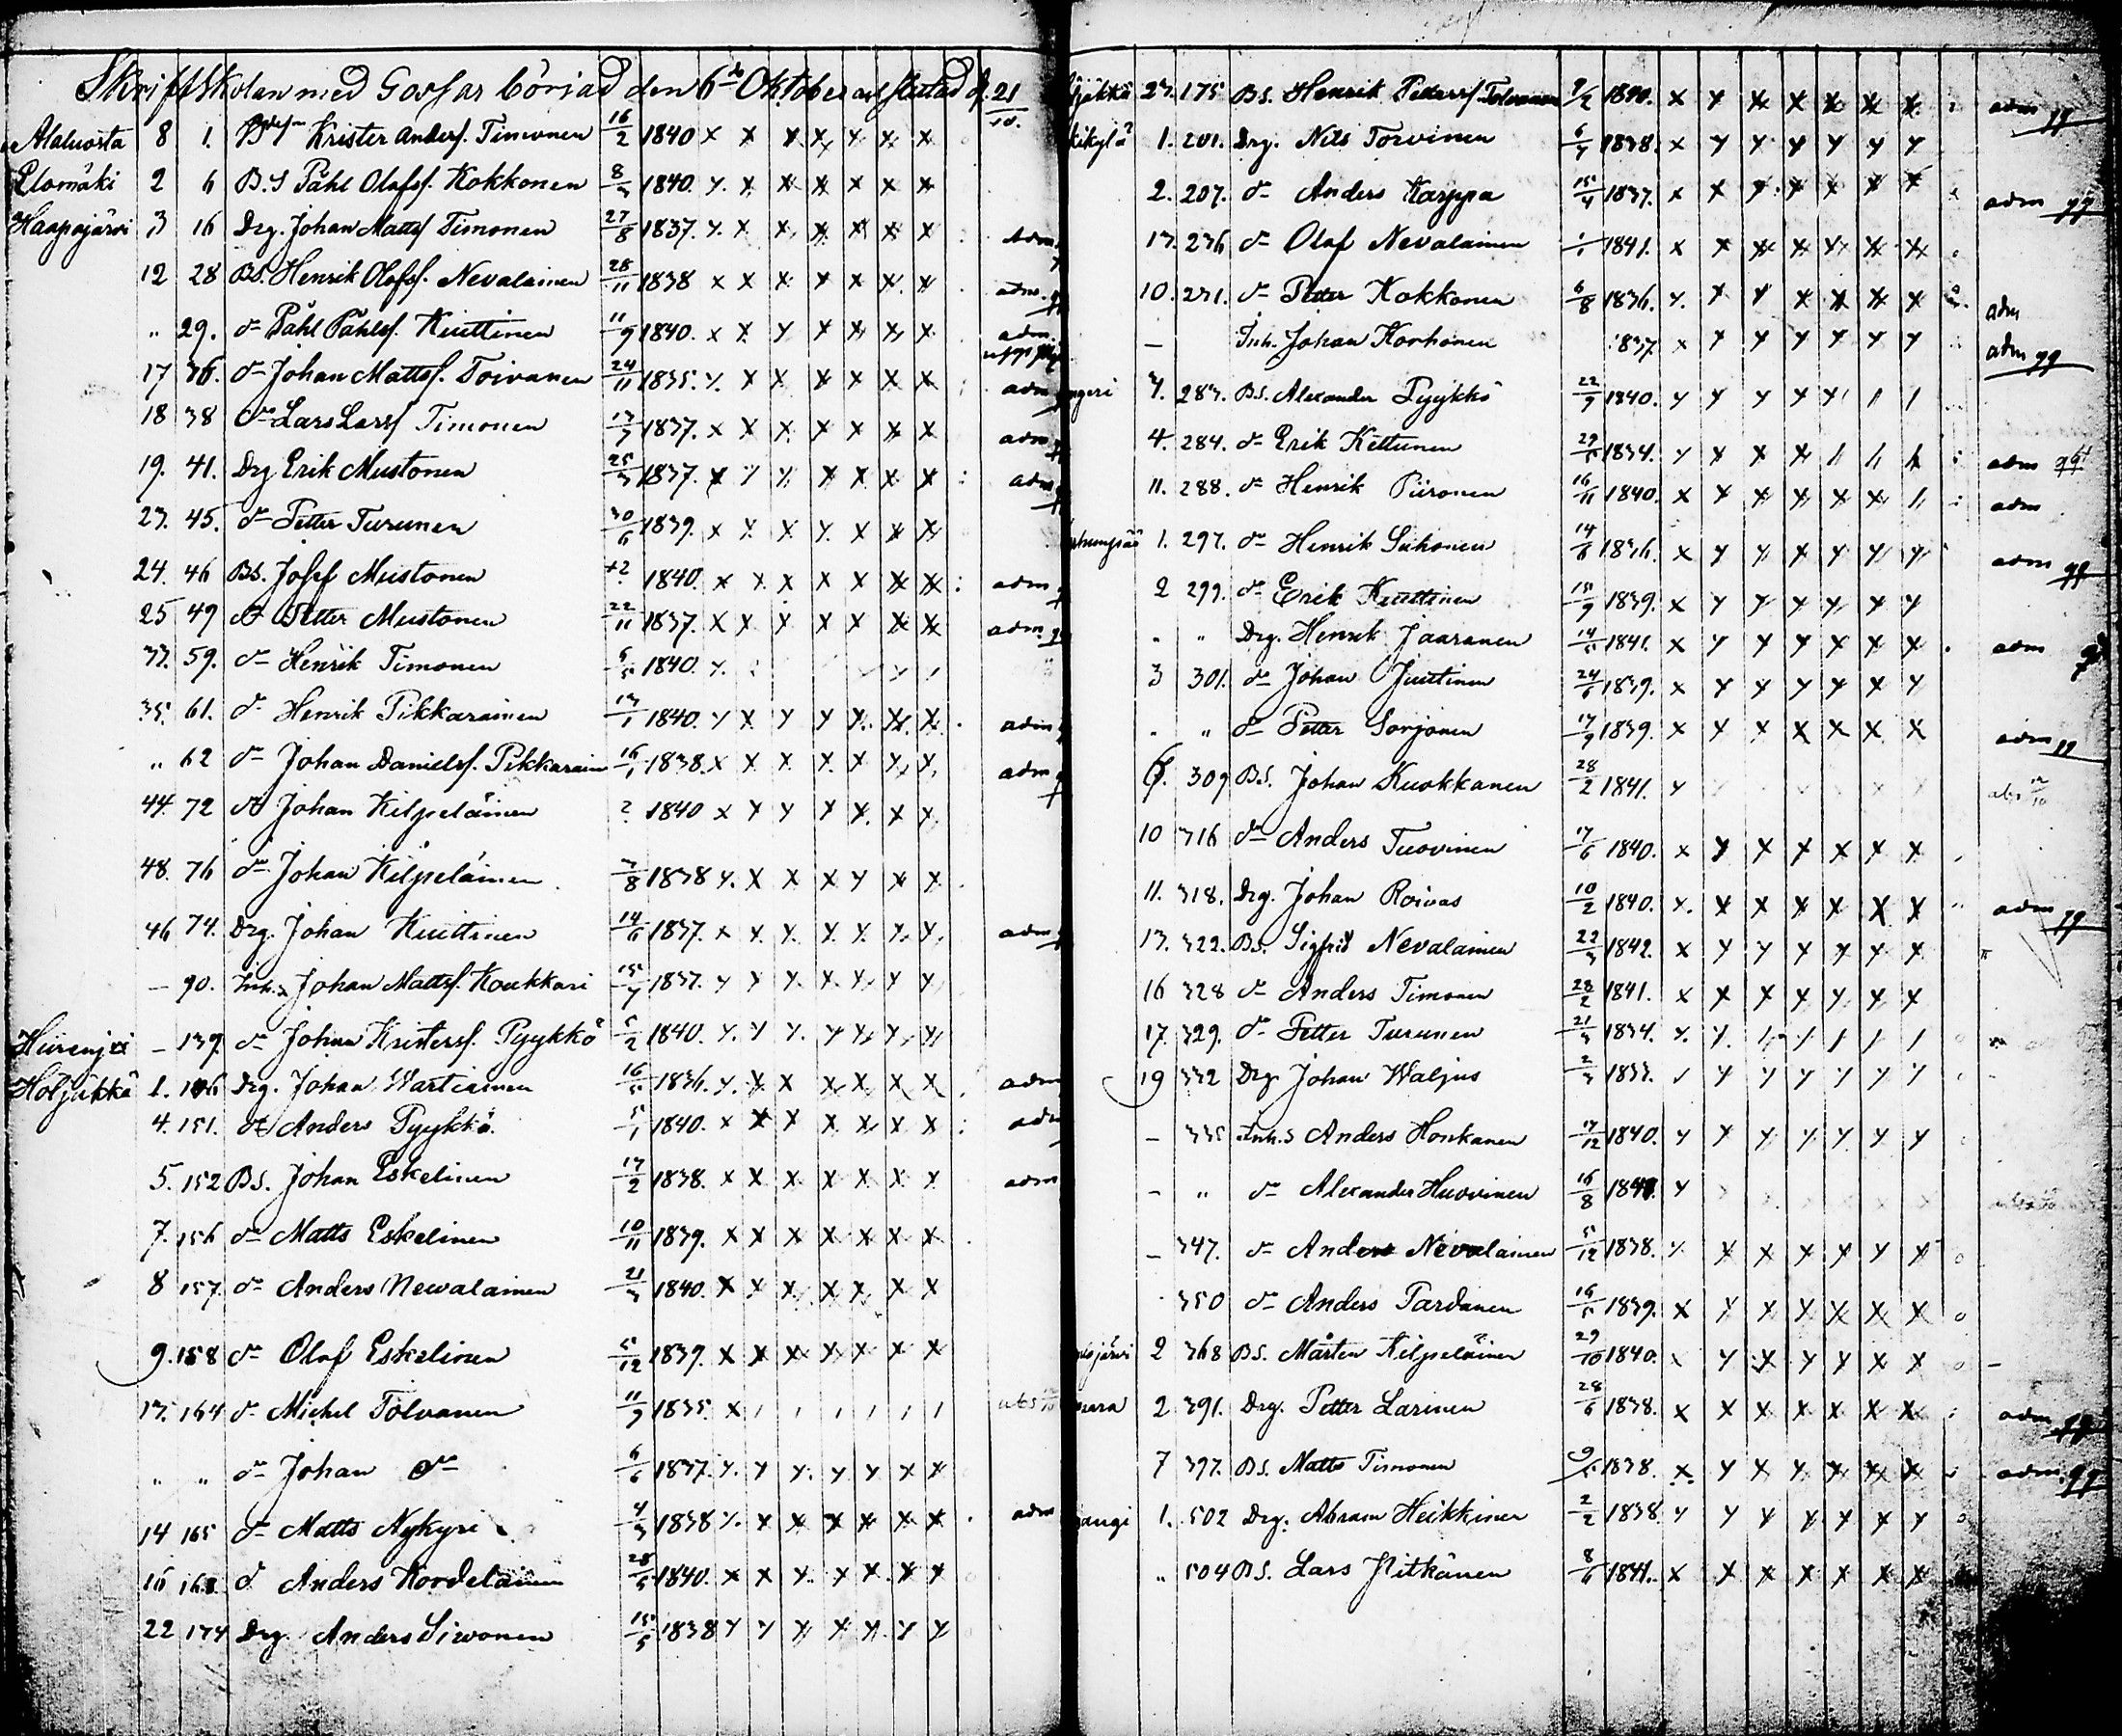 Skriftskolan med Gossar börjad den 6te Oktober afslutad d. 21/10.
Alaluosta 8 1. Krister Anderss. Timonen 16/2 1840 x x x x x x x
Elomäki 2 6 B.S Påhl Olofss. Kokkonen 8/3 1840. x x x x x x x
Haapajärvi 3 16 Drg. Johan Mattss Timonen 27/8 1837. x x x x x x x adm
12 28 BS. Henrik Olofss. Nevalainen 28/11 1838 x x x x x x x adm.
" 29. dn Påhl Påhlss. Kiuttinen 11/9 1840. x x x x x x x adm.
17 36. dn Johan Mattss. Toivanen 24/11 1835. x x x x x x x adm
18 38 dn Lars Larss Timonen 13/3 1837. x x x x x x x adm
19. 41. Drg Erik Mustonen 25/3 1837. x x x x x x x adm
23. 45. dn Petter Turunen 30/6 1839. x x x x x x x
24. 46 BS. Josef Mustonen 1840. x x x x x x x adm
25 49 dn Petter Mustonen 22/11 1837. x x x x x x x adm.
33. 59. dn Henrik Timonen 6/5 1840. x
35. 61. dn Henrik Pikkarainen 13/1 1840. x x x x x x x adm
" 62 dn Johan Danielss. Pikkarain 16/1 1838. x x x x x x x adm
44. 72 dn Johan Kilpeläinen ? 1840 x x x x x x x
48. 76 dn Johan Kilpeläinen 3/8 1838 x x x x x x x
46 74. Drg. Johan Kiuttinen 14/6 1837. x x x x x x x adm
– 90. Inh.s Johan Mattss. Koukkari 15/4 1837. x x x x x x x
– 139. dn Johan Kristerss. Pyykkö 5/2 1840. x x x x x x x
Höljäkkä 1. 146 Drg. Johan Wartiainen 16/5 1836. x x x x x x x adm
4. 151. dn Anders Pyykkö. 5/1 1840. x x x x x x x adm
5. 152 BS. Johan Eskelinen 17/2 1838. x x x x x x x adm
7. 156 dn Matts Eskelinen 10/11 1839. x x x x x x x
8 157. dn Anders Newalainen 21/3 1840. x x x x x x x
9. 158 dn Olof Eskelinen 5/12 1839. x x x x x x x
13. 164 dn Michel Tolvanen 11/9 1835. x / / / / / / abs
" " dn Johan dn 6/6 1837. x x x x x x x
14 165 dn Matts Nykyri 4/3 1838 x x x x x x x adm
16 168 dn Anders Kordelainen 28/5 1840. x x x x x x x
22 174 Drg. Anders Sivonen 15/5 1838 x x x x x x x
jäkkä 23. 175. BS. Henrik Peterss. Tolvanen 9/2 1840. x x x x x x x adm
kikylä 1. 201. Drg. Nils Torvinen 6/4 1838. x x x x x x x
2. 207. dn Anders Karppa 15/4 1837. x x x x x x x adm
13. 236 dn Olof Nevalainen 1841. x x x x x x x
10. 231. dn Petter Kokkonen 6/8 1836. x x x x x x x adm
– Inh. Johan Korhonen 1837. x x x x x x x adm
3. 283. BS. Alexander Pyykkö 22/9 1840. x x x x x / /
4. 284. dn Erik Kettunen 1834. x x x x / / x adm
11. 288. dn Henrik Piironen 16/11 1840. x x x x x x / adm
1. 297. dn Henrik Suhonen 14/6 1836. x x x x x x x adm
2 299. dn Erik Kiuttinen 15/9 1839. x x x x x x x
" " Drg. Henrik Jaaranen 14/5 1841. x x x x x x x adm
3 301. dn Johan Juutinen 24/6 1839. x x x x x x x
" " dn Petter Sorjonen 17/9 1839. x x x x x x x adm
309 BS. Johan Kuokkanen 28/2 1841. x abs 12/10
10 316 dn Anders Tuovinen 17/6 1840. x x x x x x x
11. 318. Drg. Johan Roivas 10/2 1840. x x x x x x x adm
13. 322. BS. Sigfrid Nevalainen 22/3 1842. x x x x x x x
16 328 dn Anders Timonen 28/2 1841. x x x x x x x
17. 329. dn Petter Turunen 21/3 1834. x x / / / / /
19 332 Drg Johan Waljus 2/3 1833. x x x x x x x
– 335 Inh.s Anders Honkanen 17/12 1840. x x x x x x x
– " dn Alexander Huovinen 16/8 1841. x
– 347. dn Anders Nevalainen 5/12 1838. x x x x x x x
350 dn Anders Pardanen 16/5 1839. x x x x x x x
järvi 2 368 BS. Mårten Kilpeläinen 29/10 1840. x x x x x x x –
2 391. Drg. Petter Larinen 28/6 1838. x x x x x x x adm
7 397. BS. Matts Timonen 1838. x x x x x x x adm.
1. 502 Drg. Abram Heikkinen 2/2 1838. x x x x x x x
" 504 BS. Lars Pitkänen 8/6 1841. x x x x x x x